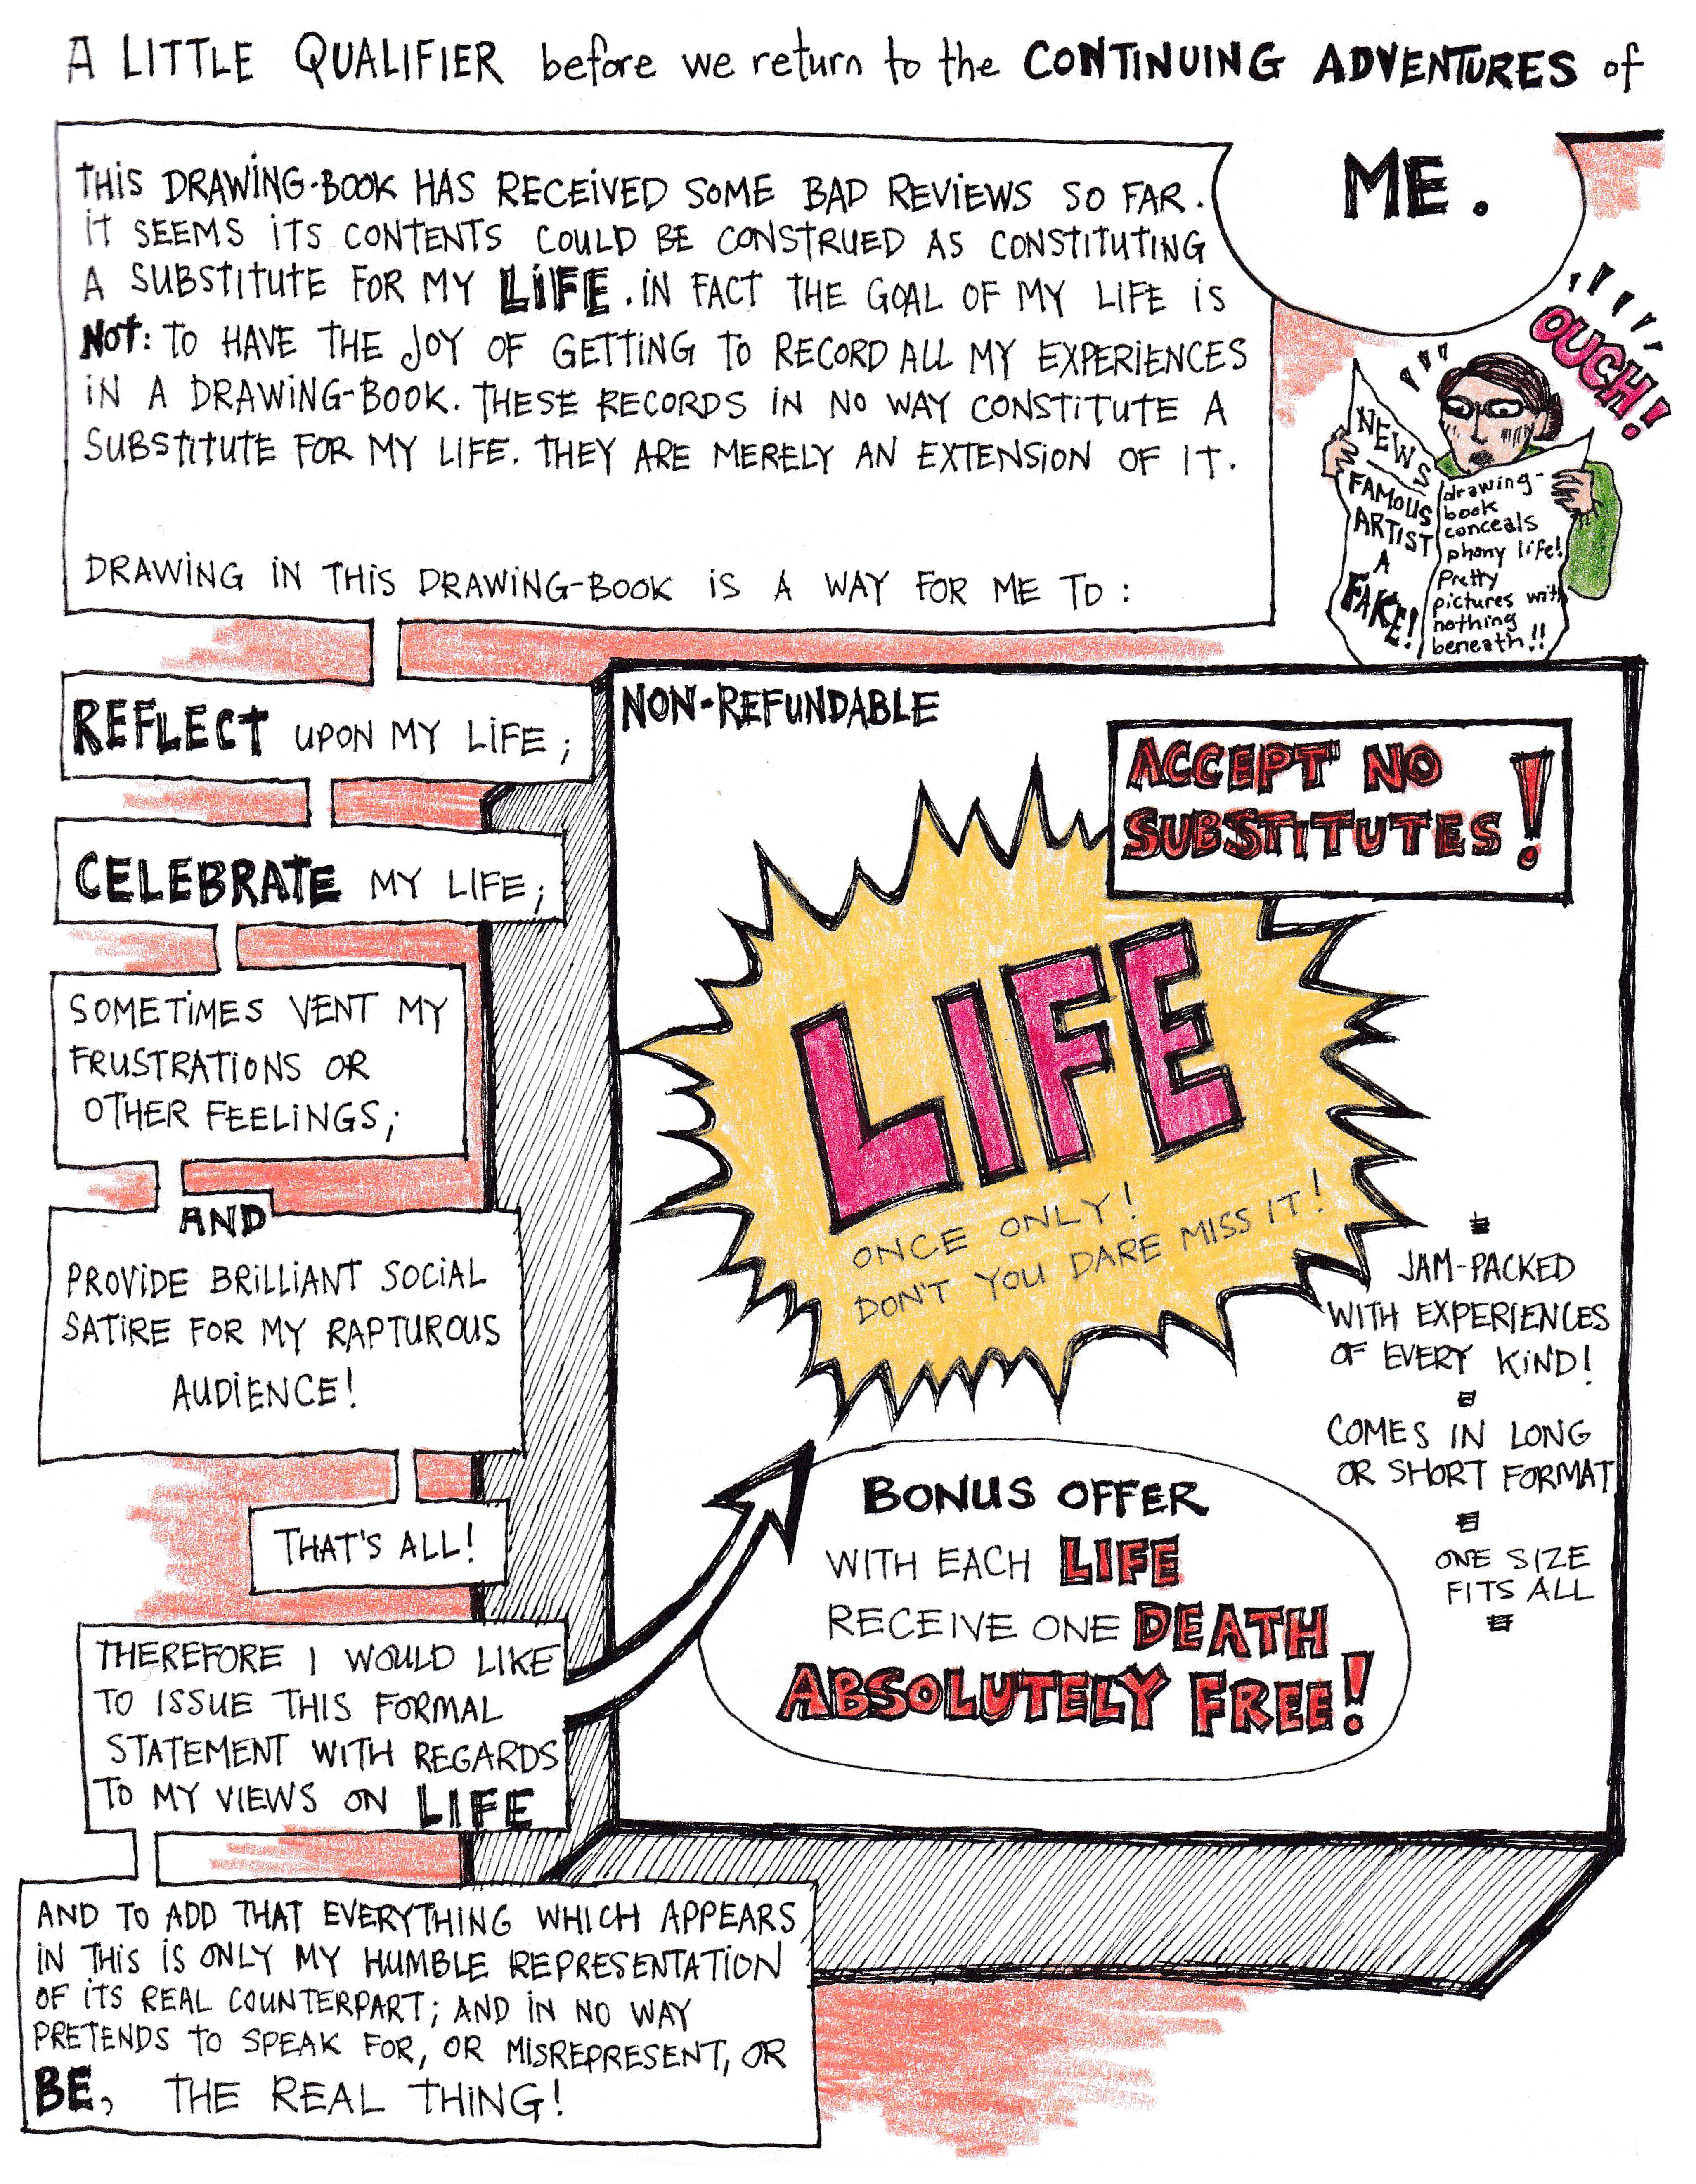 A LITTLE QUALIFIER before we return to the CONTINUING ADVENTURES of
ME.
THIS DRAWING-BOOK HAS RECEIVED SOME BAD REVIEWS SO FAR.
IT SEEMS ITS CONTENTS COULD BE CONSTRUED AS CONSTITUTING
A SUBSTITUTE FOR MY LIFE. IN FACT THE GOAL OF MY LIFE IS
NOT: TO HAVE THE JOY OF GETTING TO RECORD ALL MY EXPERIENCES
IN A DRAWING-BOOK. THESE RECORDS IN NO WAY CONSTITUTE A
SUBSTITUTE FOR MY LIFE. THEY ARE MERELY AN EXTENSION OF IT.
DRAWING IN THIS DRAWING-BOOK IS A WAY FOR ME TO:
OUCH!
NEWS
FAMOUS
ARTIST
A
FAKE!
drawing-
book
conceals
phony life!
Pretty
pictures with
nothing
beneath!!
REFLECT UPON MY LIFE;
CELEBRATE MY LIFE;
SOMETIMES VENT MY
FRUSTRATIONS OR
OTHER FEELINGS;
AND
PROVIDE BRILLIANT SOCIAL
SATIRE FOR MY RAPTUROUS
AUDIENCE!
THAT'S ALL!
THEREFORE I WOULD LIKE
TO ISSUE THIS FORMAL
STATEMENT WITH REGARDS
TO MY VIEWS ON LIFE
NON-REFUNDABLE
ACCEPT NO
SUBSTITUTES!
LIFE
ONCE ONLY!
DON'T YOU DARE MISS IT!
JAM-PACKED
WITH EXPERIENCES
OF EVERY KIND!
COMES IN LONG
OR SHORT FORMAT
ONE SIZE
FITS ALL
BONUS OFFER
WITH EACH LIFE
RECEIVE ONE DEATH
ABSOLUTELY FREE!
AND TO ADD THAT EVERYTHING WHICH APPEARS
IN THIS IS ONLY MY HUMBLE REPRESENTATION
OF ITS REAL COUNTERPART; AND IN NO WAY
PRETENDS TO SPEAK FOR, OR MISREPRESENT, OR
BE, THE REAL THING!